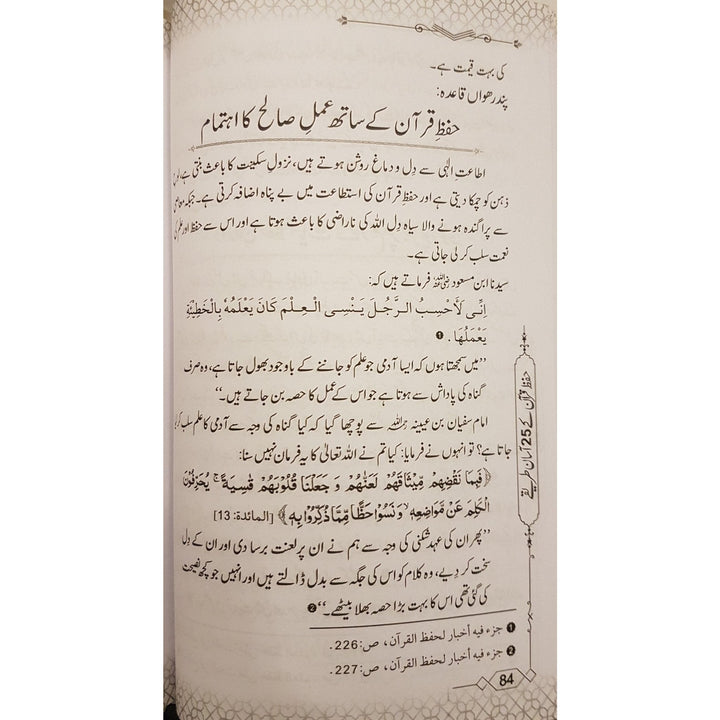 کی بہت قیمت ہے۔
پندرھواں قاعدہ:
حفظِ قرآن کے ساتھ عملِ صالح کا اہتمام
اطاعتِ الٰہی سے دِل و دماغ روشن ہوتے ہیں، نزولِ سکینت کا باعث بنتی ہے،
ذہن کو چمکا دیتی ہے اور حفظِ قرآن کی استطاعت میں بے پناہ اضافہ کرتی ہے۔ جبکہ
سے پراگندہ ہونے والا سیاہ دِل اللہ کی ناراضی کا باعث ہوتا ہے اور اس سے حفظ اور علم کی
نعمت سلب کر لی جاتی ہے۔
سیدنا ابن مسعود رضی اللہ عنہ فرماتے ہیں کہ:
اِنِّی لَاَحْسِبُ الرَّجُلَ یَنْسِی الْعِلْمَ كَانَ یَعْلَمُهٗ بِالْخَطِیْئَةِ
یَعْمَلُهَا . ❶
’’میں سمجھتا ہوں کہ ایسا آدمی جو علم کو جاننے کے باوجود بھول جاتا ہے، وہ صرف
گناہ کی پاداش سے ہوتا ہے جو اس کے عمل کا حصہ بن جاتے ہیں۔‘‘
امام سفیان بن عیینہ رحمہ اللہ سے پوچھا گیا کہ کیا گناہ کی وجہ سے آدمی کا علم سلب کر لیا
جاتا ہے؟ تو انہوں نے فرمایا: کیا تم نے اللہ تعالیٰ کا یہ فرمان نہیں سنا:
﴿فَبِمَا نَقْضِهِمْ مِّیْثَاقَهُمْ لَعَنّٰهُمْ وَ جَعَلْنَا قُلُوْبَهُمْ قٰسِیَةً ۚ یُحَرِّفُوْنَ
الْكَلِمَ عَنْ مَّوَاضِعِهٖ ۙ وَ نَسُوْا حَظًّا مِّمَّا ذُكِّرُوْا بِهٖ﴾ [المائدة: 13]
’’پھر ان کی عہد شکنی کی وجہ سے ہم نے ان پر لعنت برسا دی اور ان کے دِل
سخت کر دیے، وہ کلام کو اس کی جگہ سے بدل ڈالتے ہیں اور انہیں جو کچھ نصیحت
کی گئی تھی اس کا بہت بڑا حصہ بھلا بیٹھے۔‘‘ ❷
❶ جزء فيه أخبار لحفظ القرآن، ص: 226.
❷ جزء فيه أخبار لحفظ القرآن، ص: 227.
84
حفظِ قرآن کے 25 آسان طریقے